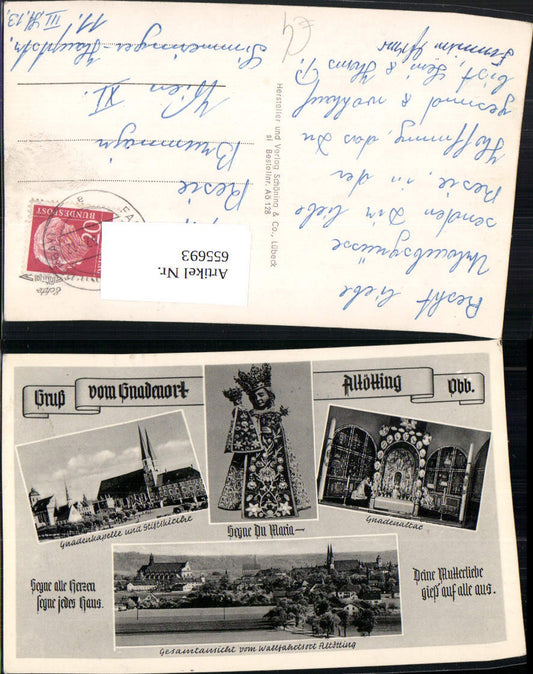 Recht liebe
Urlaubsgrüsse
senden Dir liebe
Resie, in der
Hoffnung, das Du
gesund & wohlauf
bist, Leni & Hans
Hersteller und Verlag Schöning & Co., Lübeck
Bestellnr. Aö 128
Resie
Brunmayr
Wien XI.
Simmeringer-Hauptstr.
11. III. St. 13.
20
BUNDESPOST
Artikel Nr.
655693
Gruß vom Gnadenort Altötting Obb.
Gnadenkapelle und Stiftskirche
Segne Du Maria—
Gnadenaltar
Segne alle Herzen
segne jedes Haus.
Deine Mutterliebe
gieß auf alle aus.
Gesamtansicht vom Wallfahrtsort Altötting